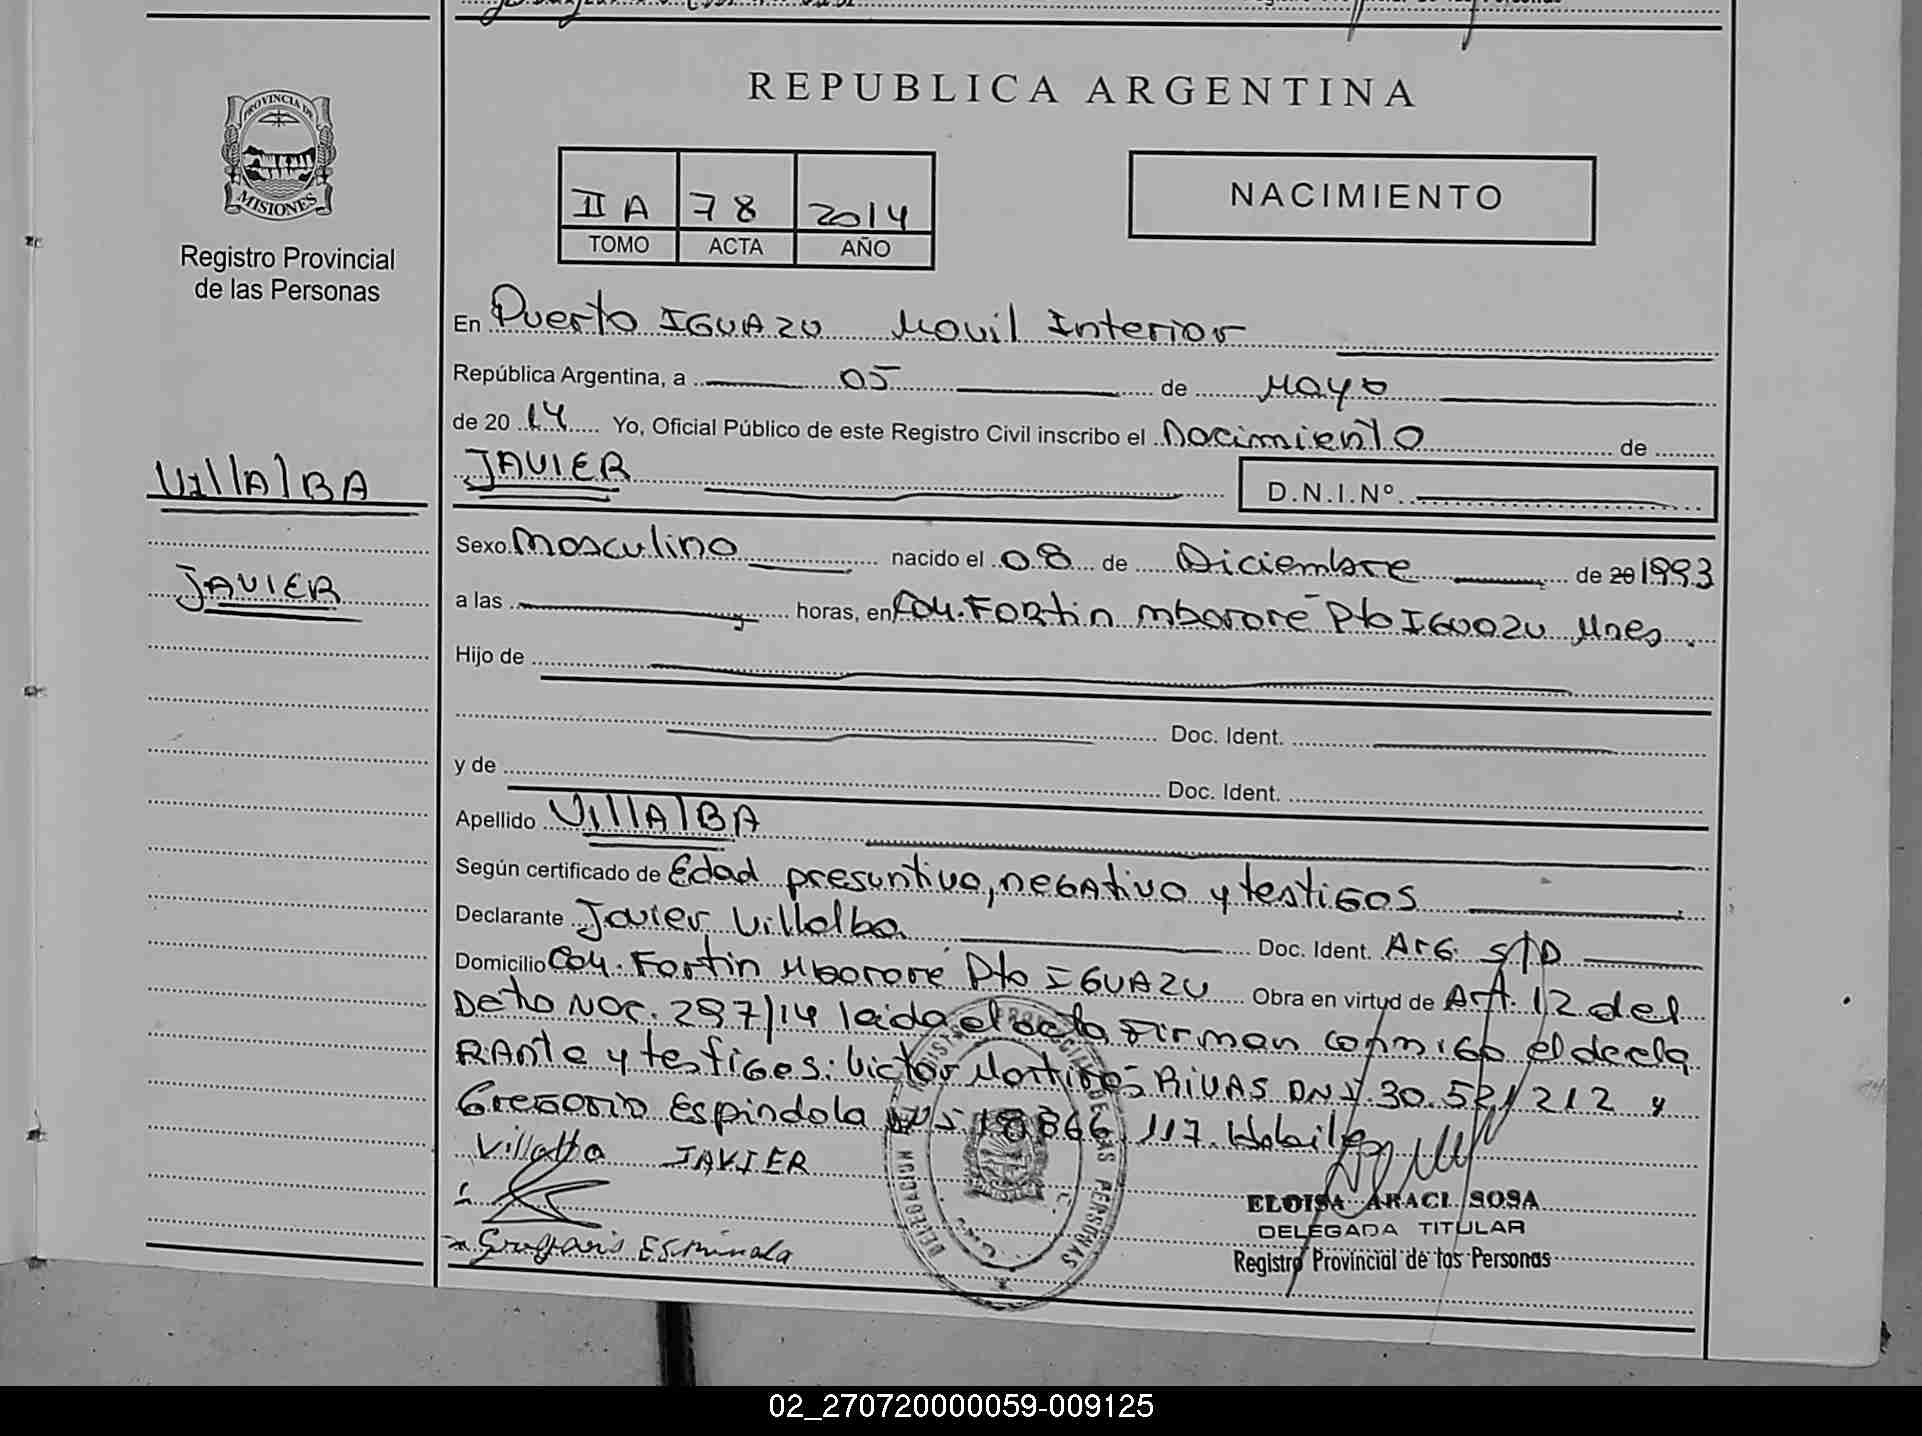 REPUBLICA ARGENTINA
PROVINCIA DE
MISIONES
Registro Provincial
de las Personas
II A 78 2014
TOMO ACTA AÑO
NACIMIENTO
En Puerto IGUAZU Movil Interior
República Argentina, a 05 de Mayo
de 20 14 Yo, Oficial Público de este Registro Civil inscribo el Nacimiento de
VillAlBA
JAVIER
JAVIER
D.N.I.Nº
Sexo Masculino nacido el 08 de Diciembre de 20 1993
a las horas, en Com. Fortin Mbororé Pto IGUAZU Mnes.
Hijo de
Doc. Ident.
y de
Doc. Ident.
Apellido VillAlBA
Según certificado de Edad presuntiva, negativo y testigos
Declarante Javier Villalba Doc. Ident. Arg S/D
Domicilio Com. Fortin Mbororé Pto IGUAZU Obra en virtud de Art. 12 del
Dcto Nac. 297/14 leida el acta Firman conmigo el decla
RAnte y testigos: Victor Martires RIVAS DNI. 30.521212 y
Gregorio Espindola 117. Habil
Villalba JAVIER
ESPINDOLA
REGISTRO PROVINCIAL DE LAS PERSONAS
DELEGACION
ELOISA ARACI SOSA
DELEGADA TITULAR
Registro Provincial de las Personas
02_270720000059-009125